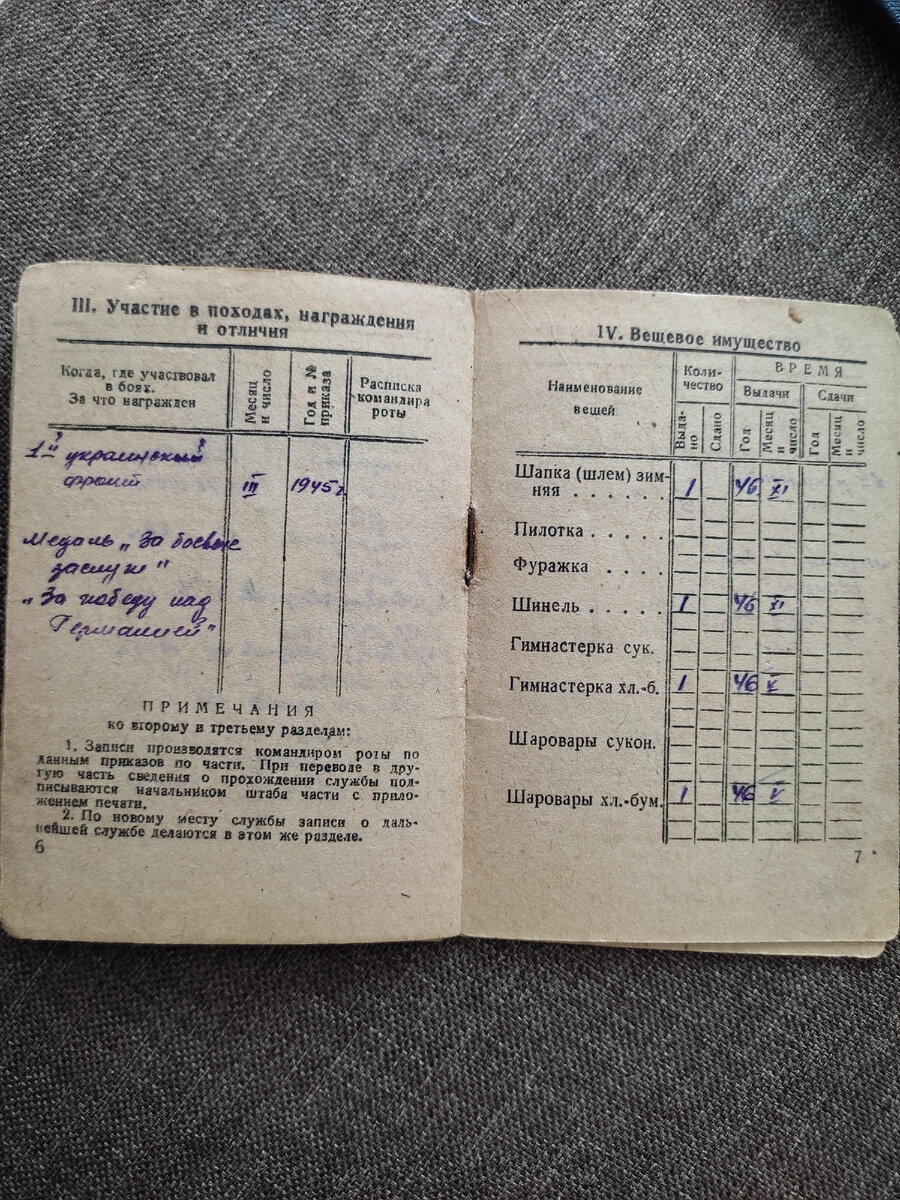 III. Участие в походах, награждения
и отличия
Когда, где участвовал
в боях.
За что награжден
Месяц
и число
Год и №
приказа
Расписка
командира
роты
1й украинский
фронт III 1945г
Медаль „За боевые
заслуги"
„За победу над
Германией"
ПРИМЕЧАНИЯ
ко второму и третьему разделам:
1. Записи производятся командиром роты по
данным приказов по части. При переводе в дру-
гую часть сведения о прохождении службы под-
писываются начальником штаба части с прило-
жением печати.
2. По новому месту службы записи о даль-
нейшей службе делаются в этом же разделе.
6
IV. Вещевое имущество
Наименование
вещей
Коли-
чество
ВРЕМЯ
Выдачи
Сдачи
Выда-
но
Сдано
Год
Месяц
и
число
Год
Месяц
и
число
Шапка (шлем) зим-
няя . . . . . . 1 46 XI
Пилотка . . . . .
Фуражка . . . .
Шинель . . . . . 1 46 XI
Гимнастерка сук.
Гимнастерка хл.-б. 1 46 V
Шаровары сукон.
Шаровары хл.-бум. 1 46 V
7